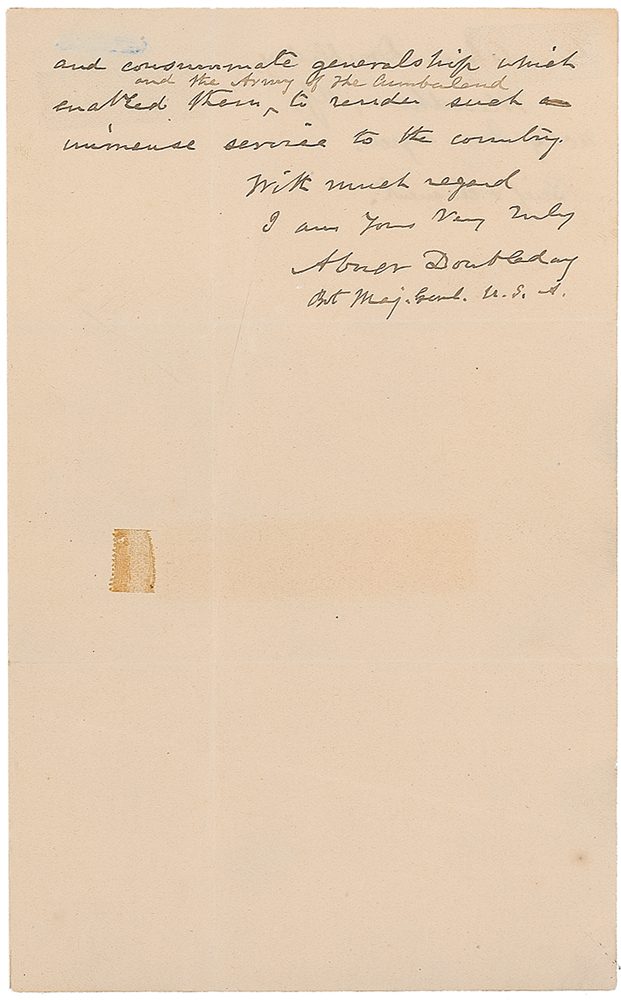 and consummate generalship which
and the Army of the Cumberland
enabled them, to render such a
immense service to the country.
With much regard
I am Yours Very Truly
Abner Doubleday
Bvt Maj. Genl. U. S. A.